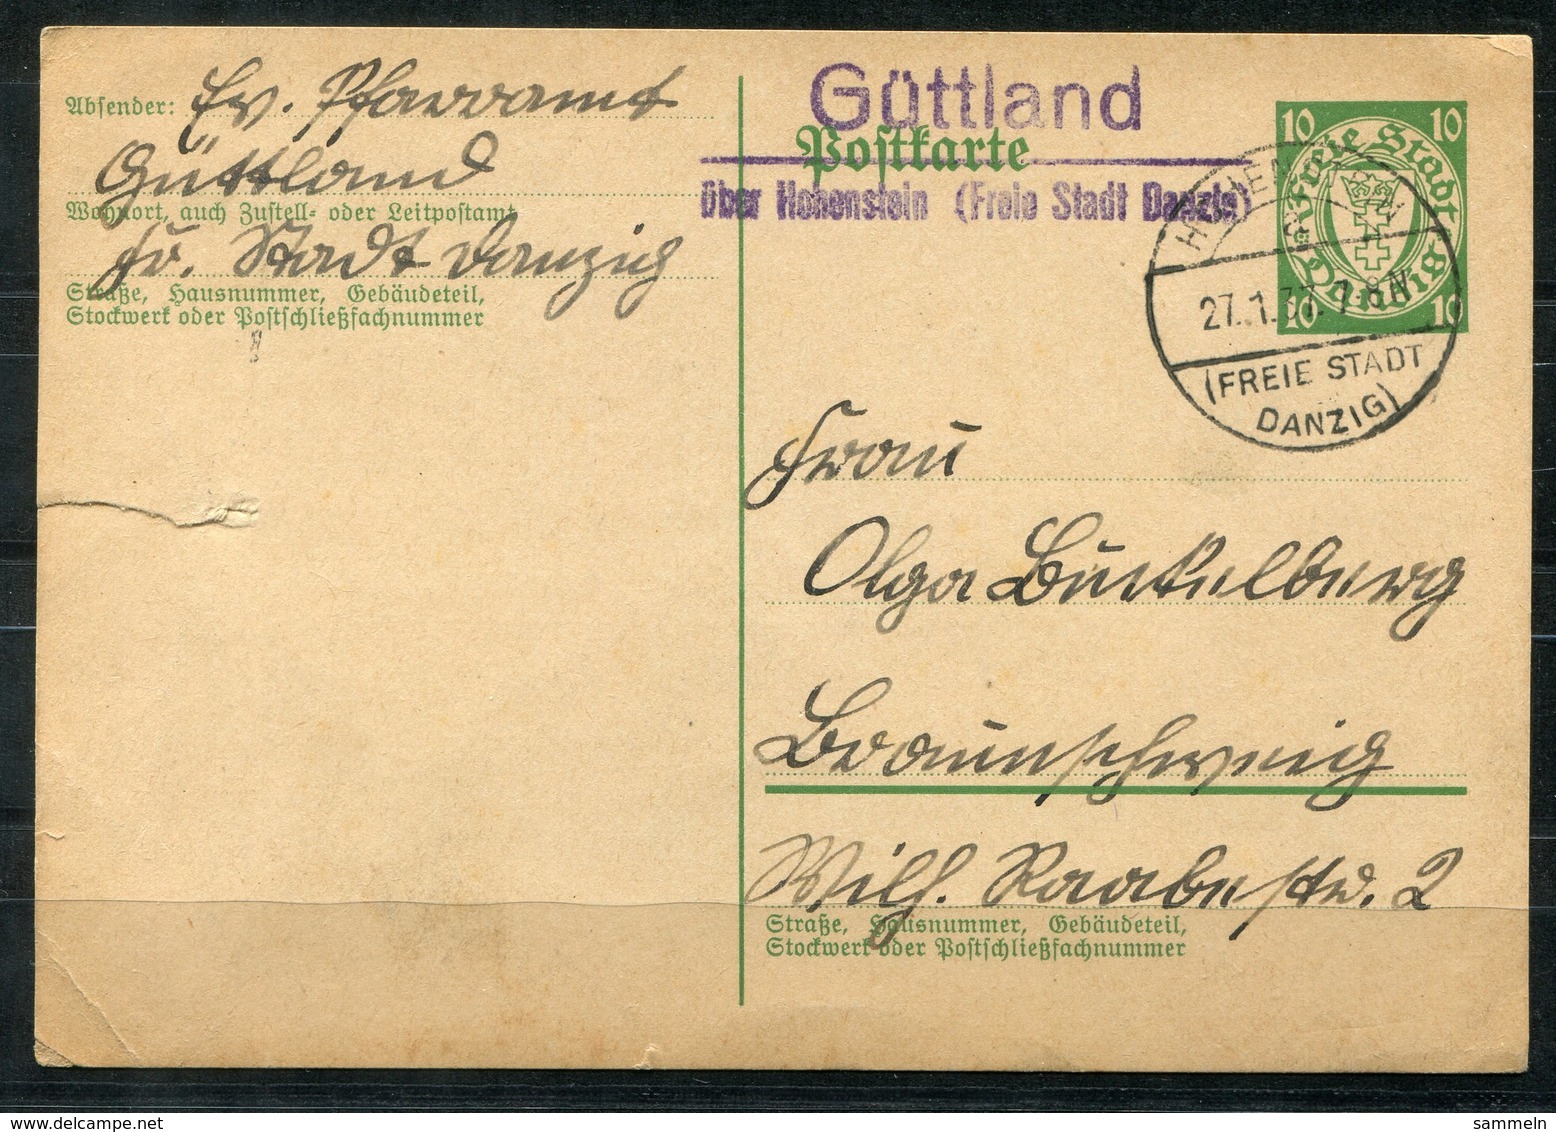 Absender: Ev. Pfarramt
Güttland
Wohnort, auch Zustell- oder Leitpostamt
Fr. Stadt Danzig
Straße, Hausnummer, Gebäudeteil,
Stockwerk oder Postschließfachnummer
Güttland
Postkarte
über Hohenstein (Freie Stadt Danzig)
10 10
Freie Stadt
Danzig
10 10
27.1.37. 7-8N
(FREIE STADT
DANZIG)
Frau
Olga Bückelberg
Braunschweig
Wilh. Raabestr. 2
Straße, Hausnummer, Gebäudeteil,
Stockwerk oder Postschließfachnummer
sammeln